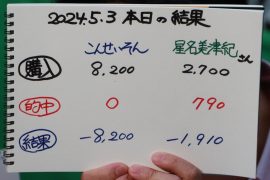 2024.5.3 本日の結果
こんせいそん 星名美津紀さん
購入 8,200 2,700
的中 0 790
結果 -8,200 -1,910